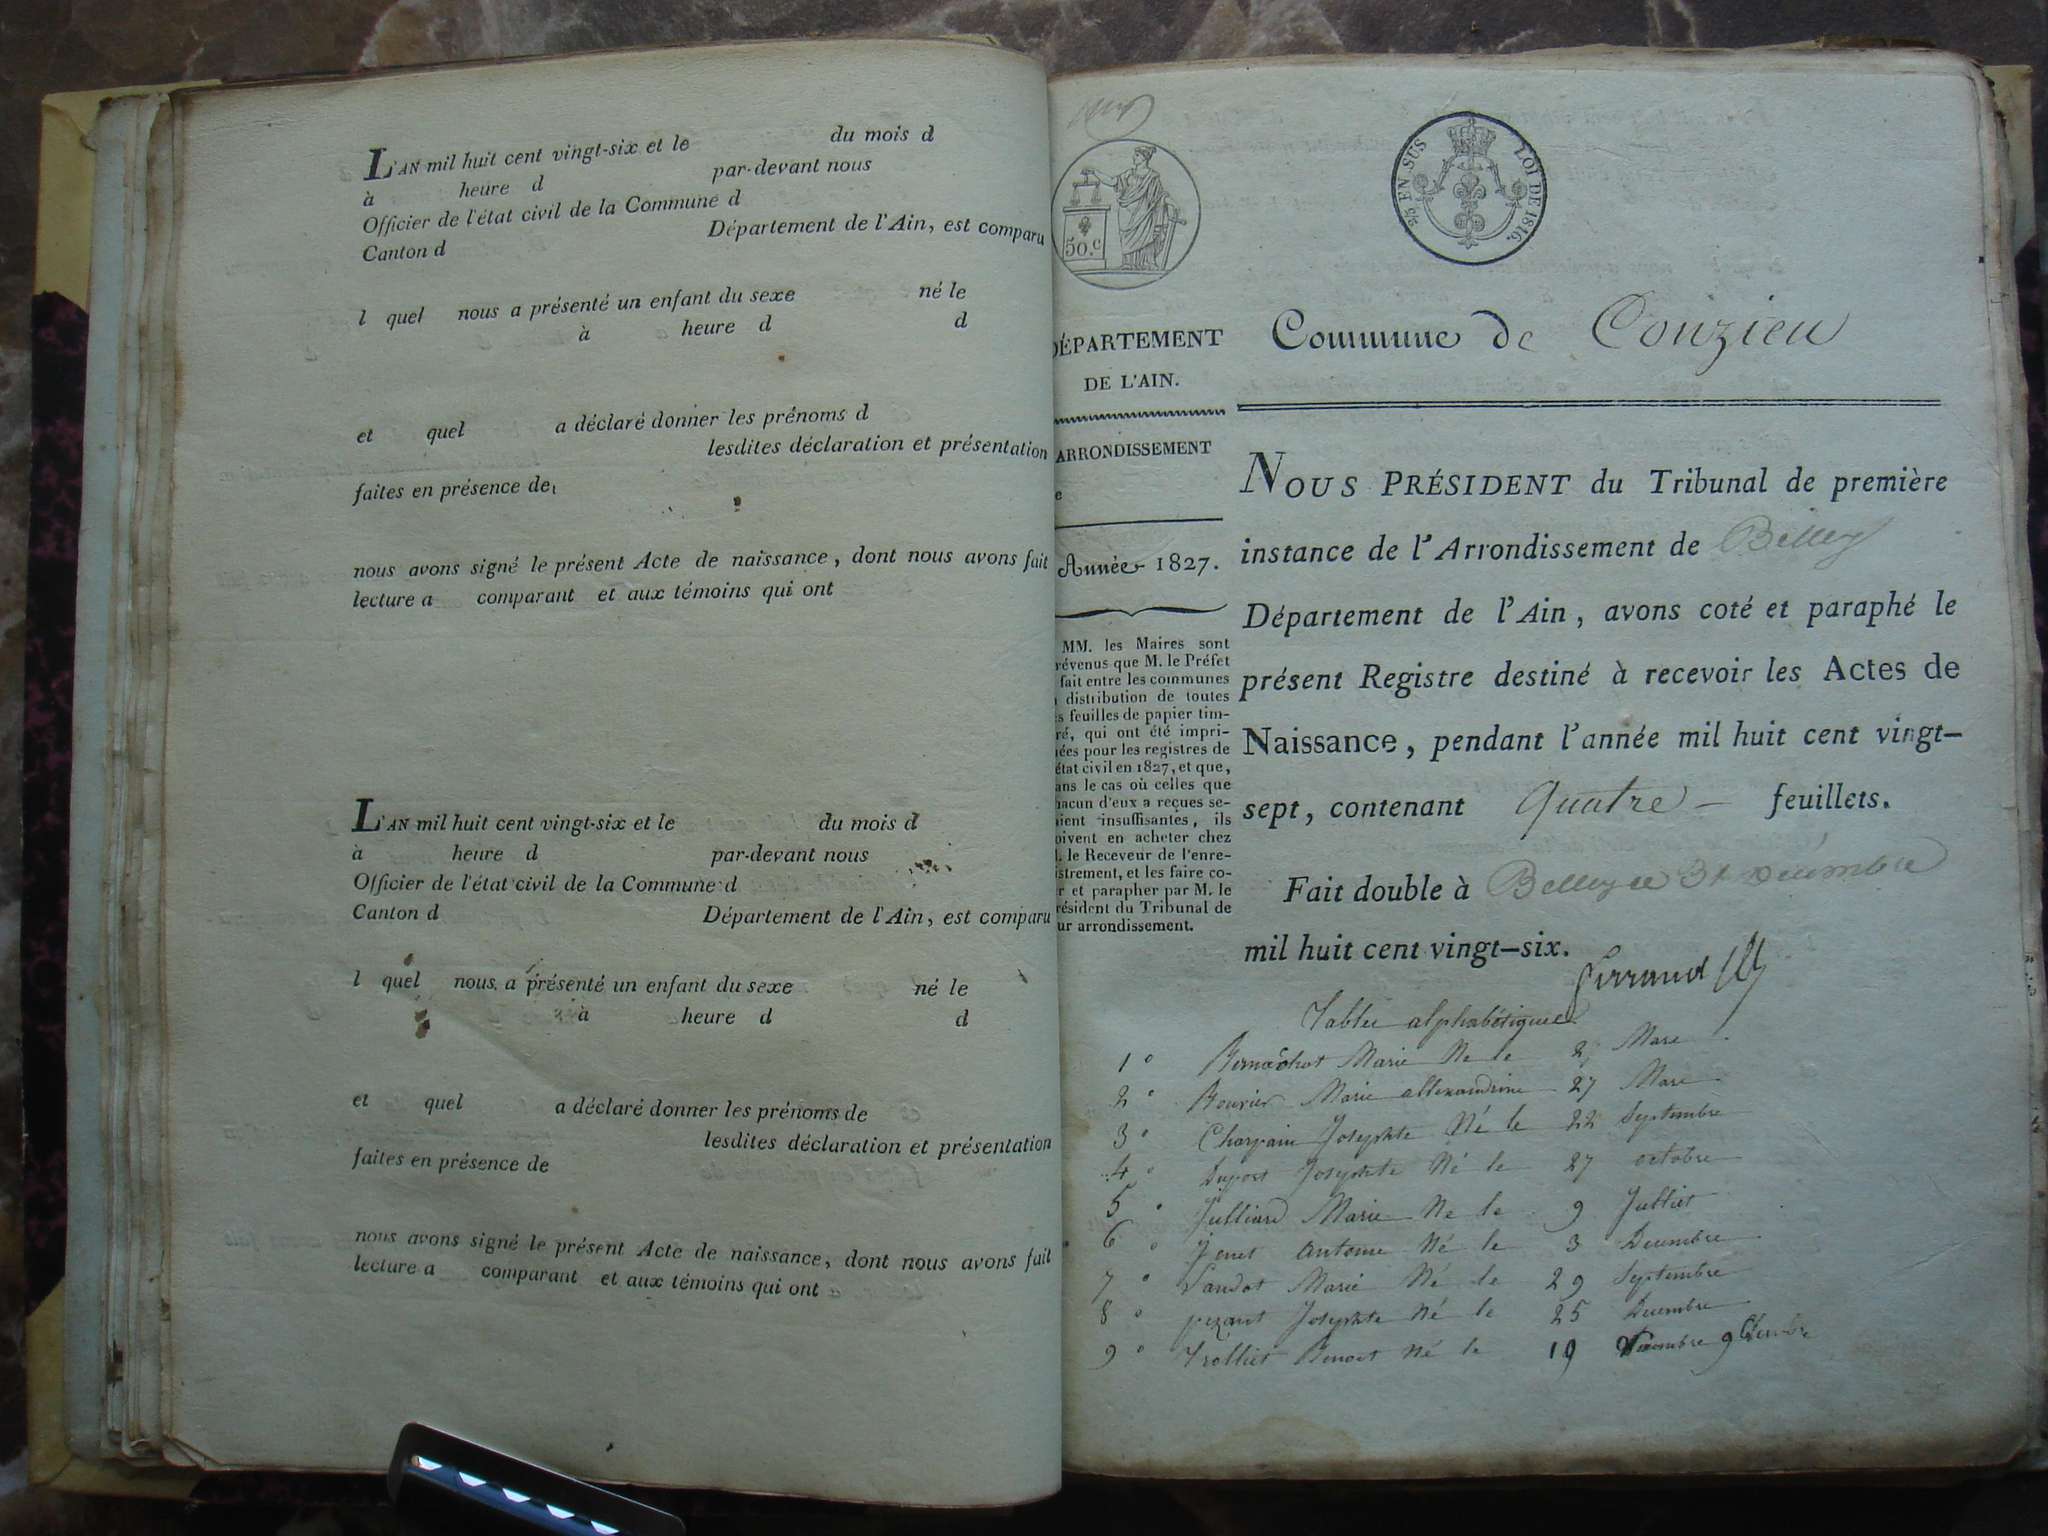 L'AN mil huit cent vingt-six et le du mois d
à heure d par-devant nous
Officier de l'état civil de la Commune d
Canton d Département de l'Ain, est comparu
l quel nous a présenté un enfant du sexe né le
à heure d d
et quel a déclaré donner les prénoms d
lesdites déclaration et présentation
faites en présence de
nous avons signé le présent Acte de naissance, dont nous avons fait
lecture a comparant et aux témoins qui ont
L'AN mil huit cent vingt-six et le du mois d
à heure d par-devant nous
Officier de l'état civil de la Commune d
Canton d Département de l'Ain, est comparu
l quel nous a présenté un enfant du sexe né le
à heure d d
et quel a déclaré donner les prénoms de
lesdites déclaration et présentation
faites en présence de
nous avons signé le présent Acte de naissance, dont nous avons fait
lecture a comparant et aux témoins qui ont
50.c
25 EN SUS LOI DE 1816.
DÉPARTEMENT
DE L'AIN.
ARRONDISSEMENT
e
Année 1827.
MM. les Maires sont
révenus que M. le Préfet
fait entre les communes
distribution de toutes
s feuilles de papier tim-
ré, qui ont été impri-
ées pour les registres de
état civil en 1827, et que,
ans le cas où celles que
hacun d'eux a reçues se-
aient insuffisantes, ils
oivent en acheter chez
. le Receveur de l'enre-
istrement, et les faire co-
r et parapher par M. le
résident du Tribunal de
ur arrondissement.
Commune de Conzieu
NOUS PRÉSIDENT du Tribunal de première
instance de l'Arrondissement de Belley
Département de l'Ain, avons coté et paraphé le
présent Registre destiné à recevoir les Actes de
Naissance, pendant l'année mil huit cent vingt-
sept, contenant Quatre feuillets.
Fait double à Belley le 31 Décembre
mil huit cent vingt-six.
Table alphabétique
1° Marie Ne le 2 Mars
2° Bouvier Marie allexandrine 27 Mars
3° Charpain Josephte Né le 22 Septembre
4° Dupost Josephte Né le 27 octobre
5° Julliard Marie Ne le 9 Julliet
6° Jenet Antoine Né le 3 Decembre
7° Landot Marie Né le 29 Septembre
8° pezant Josephte Né le 25 Decembre
9° Trolliet Benoit Né le 19